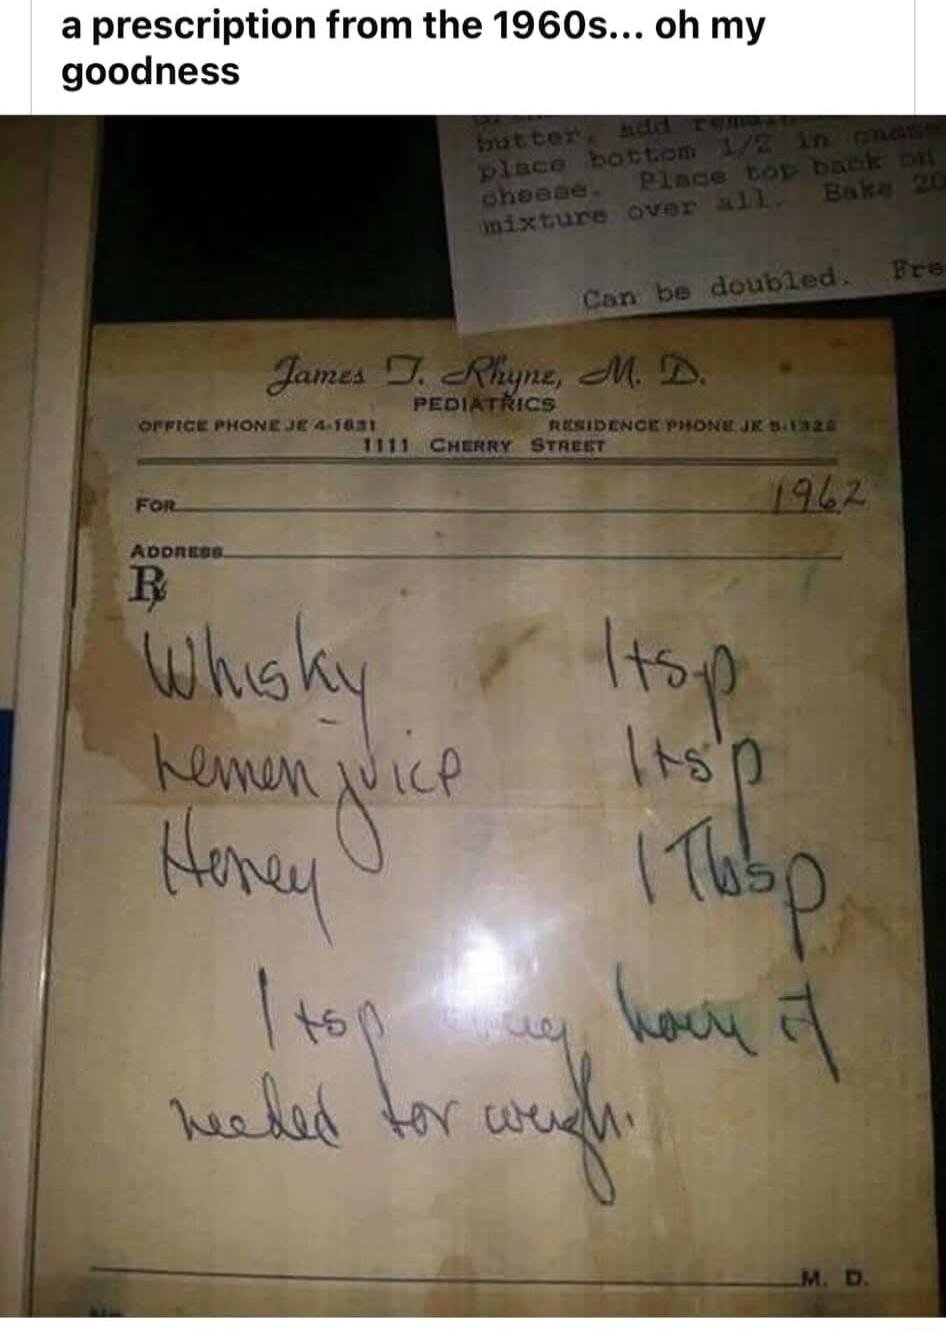 a prescription from the 1960s... oh my
goodness
butter, add
place bottom 1/2 in
cheese. Place top back on
mixture over all. Bake 20
Can be doubled. Fre
James T. Rhyne, M. D.
PEDIATRICS
OFFICE PHONE JE 4-1831 RESIDENCE PHONE JE 5-1328
1111 CHERRY STREET
FOR 1962
ADDRESS
Rx
Whisky 1 tsp
Lemon juice 1 tsp
Honey 1 Tbsp
1 tsp every hour if
needed for cough.
M. D.